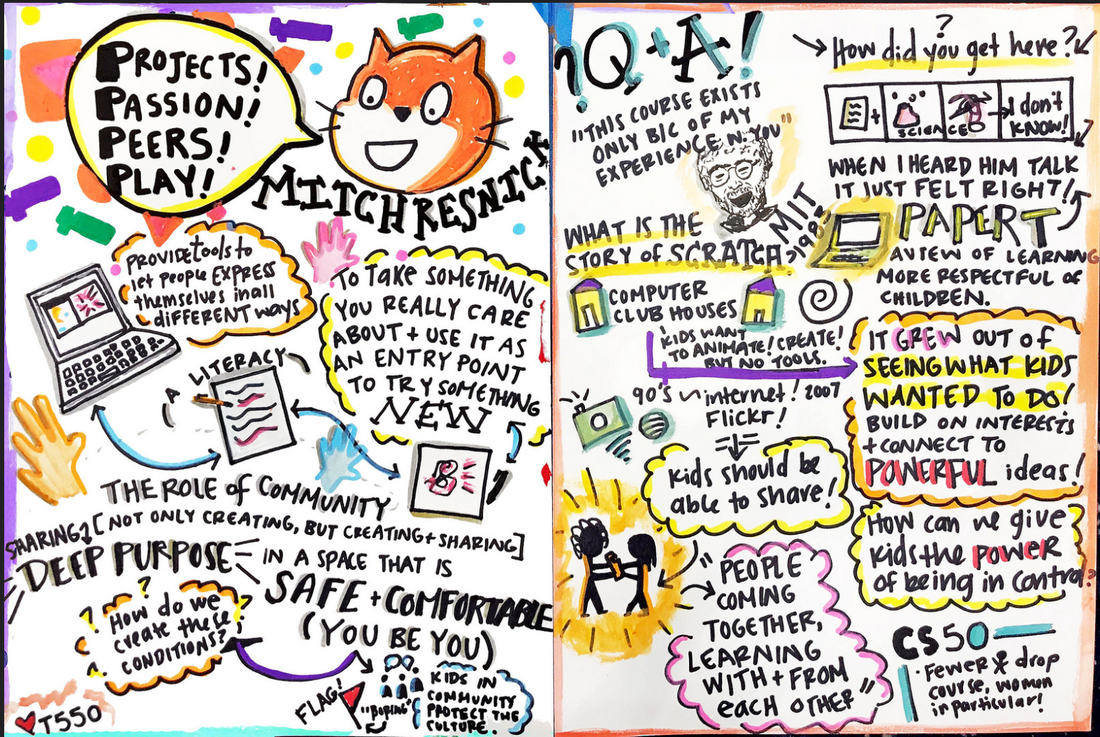 PROJECTS!
PASSION!
PEERS!
PLAY!
MITCH RESNICK
PROVIDE tools to
let people EXPRESS
themselves in all
DIFFERENT WAYS
TO TAKE SOMETHING
YOU REALLY CARE
ABOUT + USE IT AS
AN ENTRY POINT
TO TRY SOMETHING
NEW
A LITERACY
THE ROLE of COMMUNITY
SHARING
[NOT ONLY CREATING, BUT CREATING + SHARING]
DEEP PURPOSE
IN A SPACE THAT IS
SAFE + COMFORTABLE
(YOU BE YOU)
How do we
create these
CONDITIONS?
FLAG!
"BORING"
KIDS IN
COMMUNITY
PROTECT THE
CULTURE.
T550
Q+A!
"THIS COURSE EXISTS
ONLY B/C OF MY
EXPERIENCE N. YOU"
MIT
1982
WHAT IS THE
STORY of SCRATCH?
COMPUTER
CLUB HOUSES
KIDS WANT
TO ANIMATE! CREATE!
BUT NO TOOLS.
90's internet! 2007
Flickr!
kids should be
able to share!
"PEOPLE
COMING
TOGETHER,
LEARNING
WITH + FROM
each OTHER"
?
How did you get here?
+
SCIENCE
I don't
KNOW!
WHEN I HEARD HIM TALK
IT JUST FELT RIGHT!
PAPERT
A VIEW OF LEARNING
MORE RESPECTFUL OF
CHILDREN.
IT GREW OUT OF
SEEING WHAT KIDS
WANTED TO DO!
BUILD ON INTERESTS
+ CONNECT TO
POWERFUL ideas!
How can we give
kids the power
of being in control?
CS50
· Fewer drop
course, women
in particular!